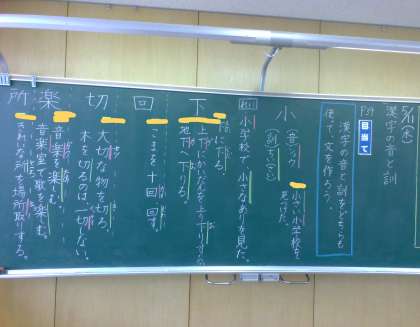 漢字の音と訓
P.59
めあて
漢字の音と訓をどちらも
使って、文を作ろう。
小
(音)ショウ
小さい小学校を
見つけた。
小学校で、小さなあリを見た。
下
下に下る。
地下に下りる。
回
こまを十回回す。
切
大切な物を切る。
木を切るのは一切しない。
楽
音楽を楽しむ。
音楽室で歌を楽しむ。
所
きれいな所を場所取りする。